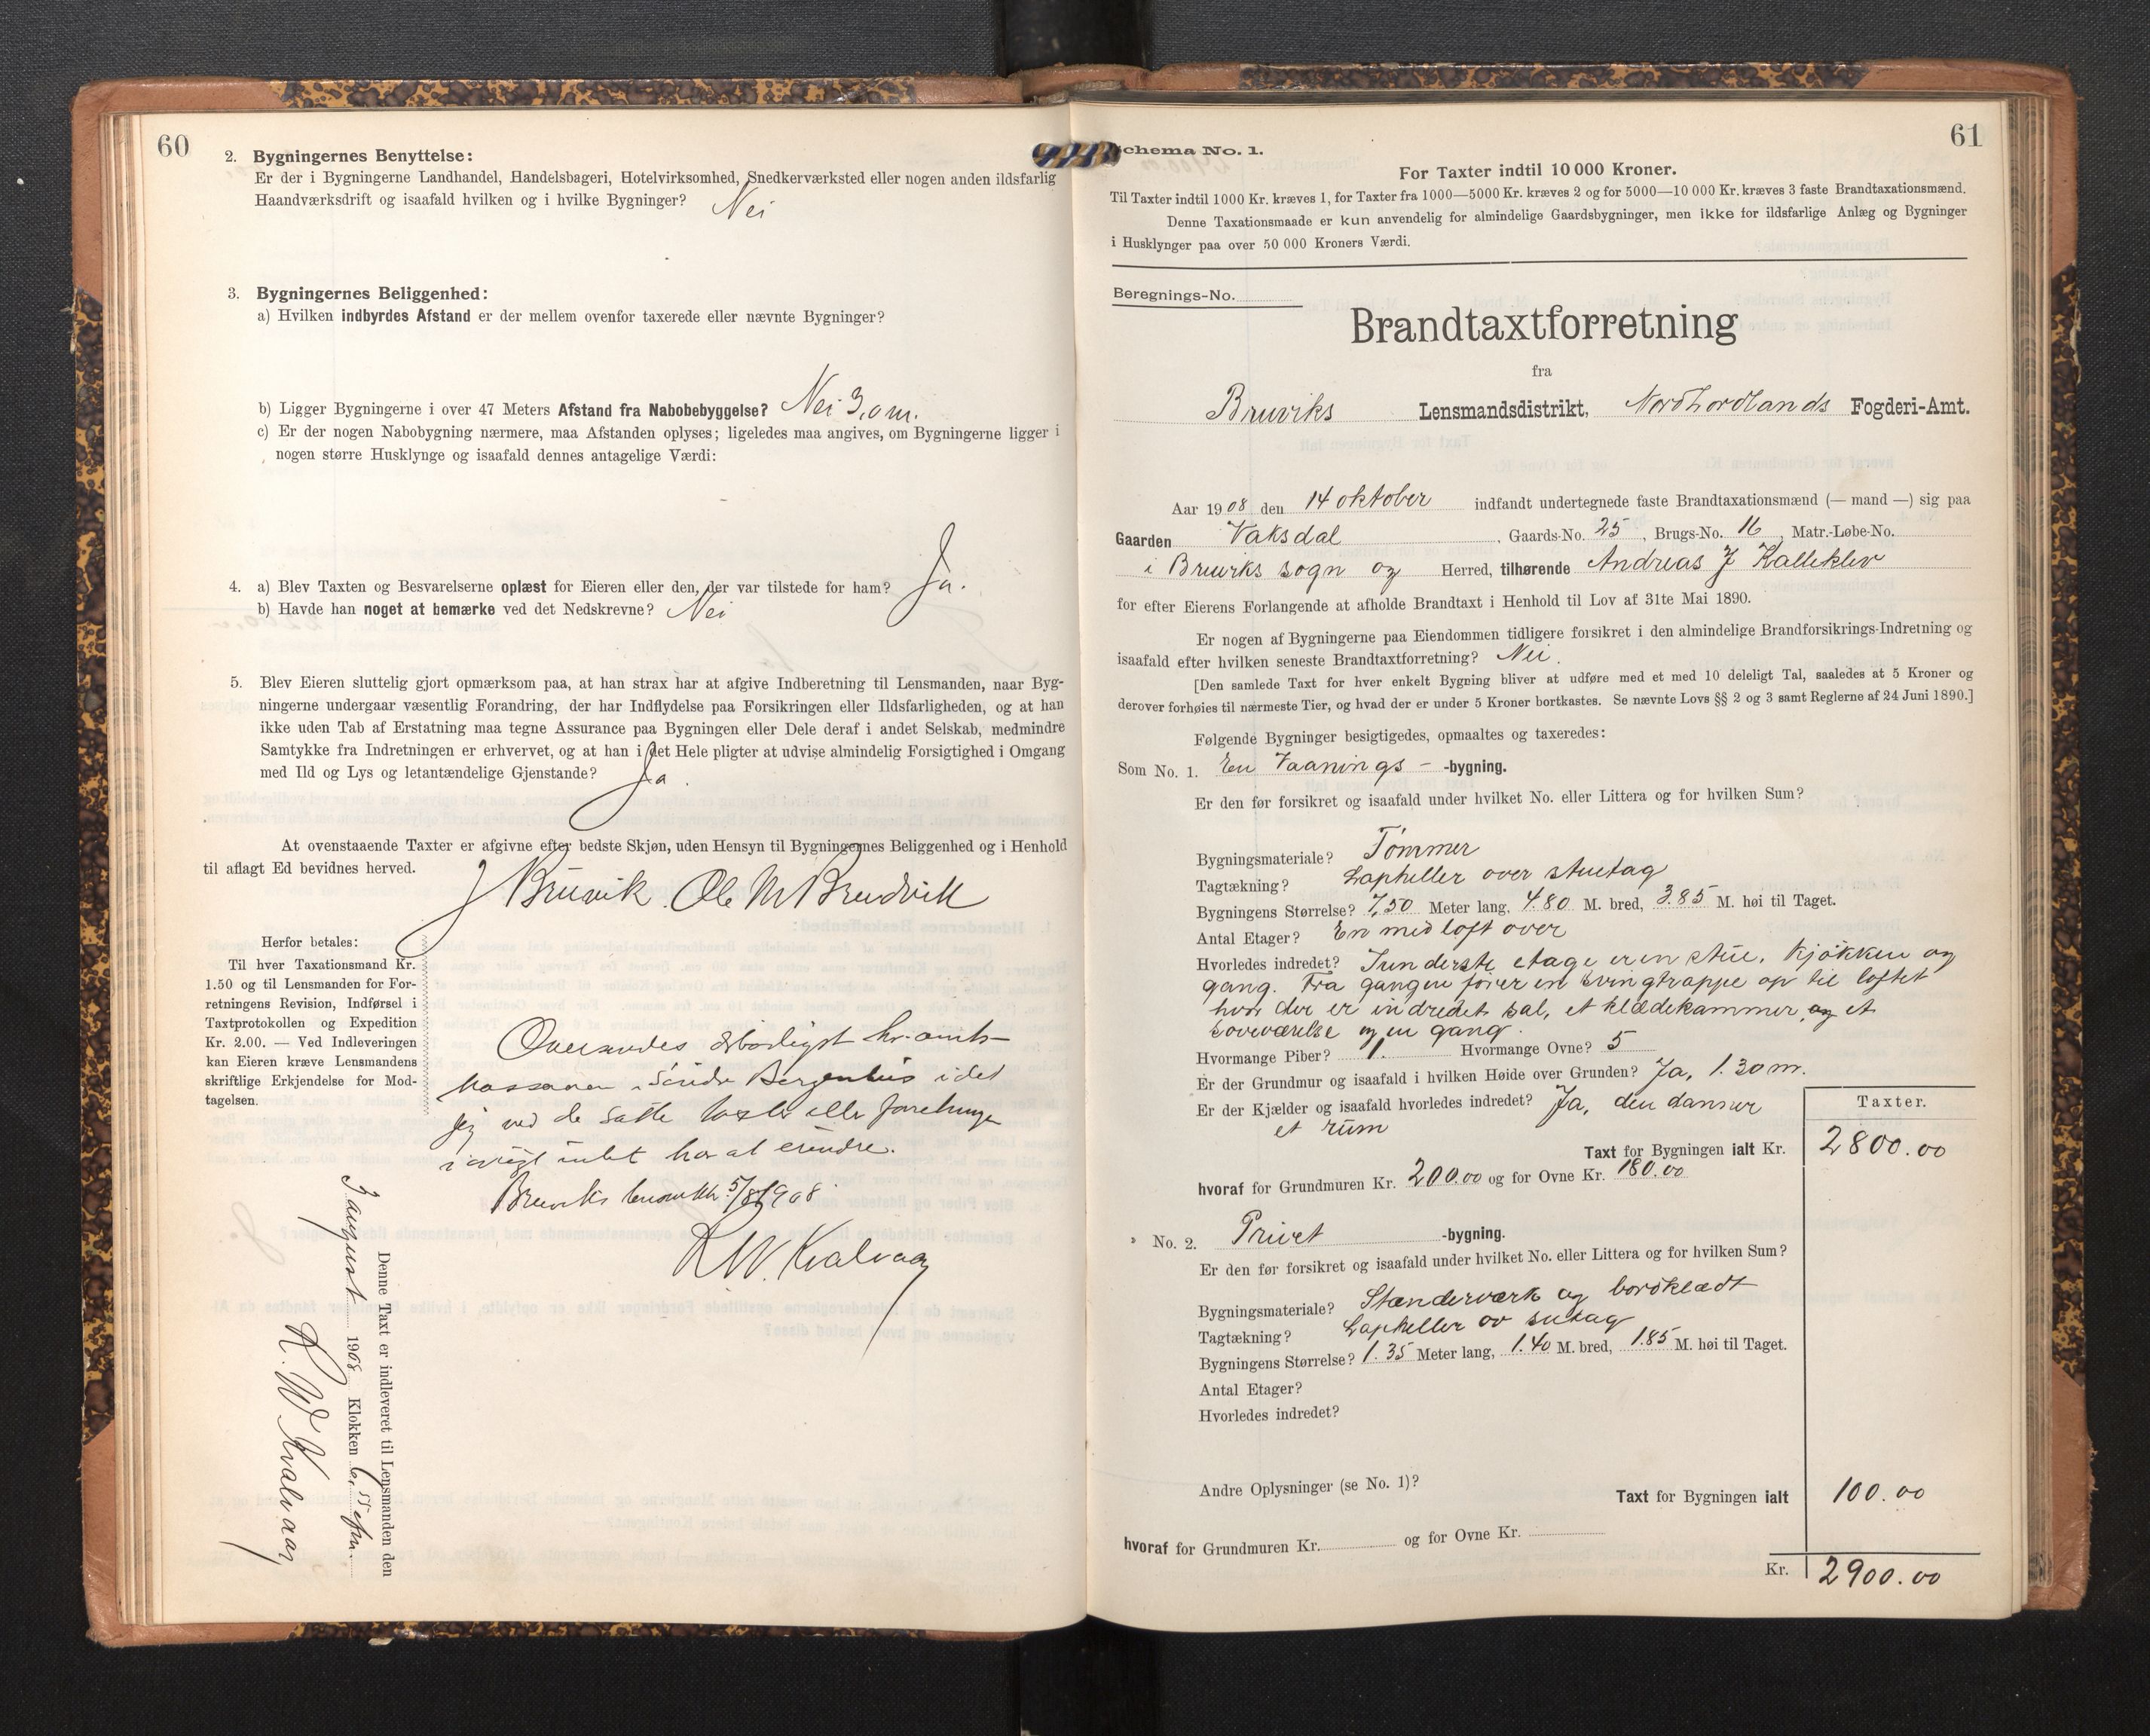 60
2. Bygningernes Benyttelse:
Er der i Bygningerne Landhandel, Handelsbageri, Hotelvirksomhed, Snedkerværksted eller nogen anden ildsfarlig
Haandværksdrift og isaafald hvilken og i hvilke Bygninger? Nei
3. Bygningernes Beliggenhed:
a) Hvilken indbyrdes Afstand er der mellem ovenfor taxerede eller nævnte Bygninger?
b) Ligger Bygningerne i over 47 Meters Afstand fra Nabobebyggelse? Nei 3,0 m.
c) Er der nogen Nabobygning nærmere, maa Afstanden oplyses; ligeledes maa angives, om Bygningerne ligger i
nogen større Husklynge og isaafald dennes antagelige Værdi:
4. a) Blev Taxten og Besvarelserne oplæst for Eieren eller den, der var tilstede for ham? Ja.
b) Havde han noget at bemærke ved det Nedskrevne? Nei
5. Blev Eieren sluttelig gjort opmærksom paa, at han strax har at afgive Indberetning til Lensmanden, naar Byg-
ningerne undergaar væsentlig Forandring, der har Indflydelse paa Forsikringen eller Ildsfarligheden, og at han
ikke uden Tab af Erstatning maa tegne Assurance paa Bygningen eller Dele deraf i andet Selskab, medmindre
Samtykke fra Indretningen er erhvervet, og at han i det Hele pligter at udvise almindelig Forsigtighed i Omgang
med Ild og Lys og letantændelige Gjenstande? Ja
At ovenstaaende Taxter er afgivne efter bedste Skjøn, uden Hensyn til Bygningernes Beliggenhed og i Henhold
til aflagt Ed bevidnes herved.
J Bruvik. Ole M Bruvik
Herfor betales:
Til hver Taxationsmand Kr.
1.50 og til Lensmanden for For-
retningens Revision, Indførsel i
Taxtprotokollen og Expedition
Kr. 2.00. — Ved Indleveringen
kan Eieren kræve Lensmandens
skriftlige Erkjendelse for Mod-
tagelsen.
Oversendes ærbødigst hr. amts-
kasserer i Søndre Bergenhus idet
jeg ved de satte taxter eller forretninge
iøvrigt intet har at erindre.
Bruviks 5/8 1908
R W. Kvalvaag
Denne Taxt er indleveret til Lensmanden den
3 august 1908 Klokken 6,55 efm.
R. W Kvalvaag
61
Schema No. 1.
For Taxter indtil 10 000 Kroner.
Til Taxter indtil 1000 Kr. kræves 1, for Taxter fra 1000—5000 Kr. kræves 2 og for 5000—10 000 Kr. kræves 3 faste Brandtaxationsmænd.
Denne Taxationsmaade er kun anvendelig for almindelige Gaardsbygninger, men ikke for ildsfarlige Anlæg og Bygninger
i Husklynger paa over 50 000 Kroners Værdi.
Beregnings-No.
Brandtaxtforretning
fra
Bruviks Lensmandsdistrikt, Nordhordlands Fogderi-Amt.
Aar 1908 den 14 oktober indfandt undertegnede faste Brandtaxationsmænd (— mand —) sig paa
Gaarden Vaksdal, Gaards-No. 25, Brugs-No. 16, Matr.-Løbe-No.
i Bruviks sogn og Herred, tilhørende Andreas J Kalleklev
for efter Eierens Forlangende at afholde Brandtaxt i Henhold til Lov af 31te Mai 1890.
Er nogen af Bygningerne paa Eiendommen tidligere forsikret i den almindelige Brandforsikrings-Indretning og
isaafald efter hvilken seneste Brandtaxtforretning? Nei.
[Den samlede Taxt for hver enkelt Bygning bliver at udføre med et med 10 deleligt Tal, saaledes at 5 Kroner og
derover forhøies til nærmeste Tier, og hvad der er under 5 Kroner bortkastes. Se nævnte Lovs §§ 2 og 3 samt Reglerne af 24 Juni 1890.]
Følgende Bygninger besigtigedes, opmaaltes og taxeredes:
Som No. 1. En Vaanings- -bygning.
Er den før forsikret og isaafald under hvilket No. eller Littera og for hvilken Sum?
Bygningsmateriale? Tømmer
Tagtækning? Lapheller over stutag
Bygningens Størrelse? 7,50 Meter lang, 4.80 M. bred, 3.85 M. høi til Taget.
Antal Etager? En med loft over
Hvorledes indredet? I underste etage er en stue, kjøkken og
gang. Fra gangen fører en svingtrappe op til loftet
hvor der er indredet sal, et klædekammer, og et
soveværelse og en gang.
Hvormange Piber? 1. Hvormange Ovne? 5
Er der Grundmur og isaafald i hvilken Høide over Grunden? Ja, 1.30 m.
Er der Kjælder og isaafald hvorledes indredet? Ja, den danner
et rum
Taxter.
Taxt for Bygningen ialt Kr. 2800.00
hvoraf for Grundmuren Kr. 200.00 og for Ovne Kr. 180.00
No. 2. Privet -bygning.
Er den før forsikret og isaafald under hvilket No. eller Littera og for hvilken Sum?
Bygningsmateriale? Standerværk og bordklædt
Tagtækning? Lapheller ov sutag
Bygningens Størrelse? 1.35 Meter lang, 1.40 M. bred, 1.85 M. høi til Taget.
Antal Etager?
Hvorledes indredet?
Andre Oplysninger (se No. 1)?
Taxt for Bygningen ialt 100.00
hvoraf for Grundmuren Kr. og for Ovne Kr.
Kr. 2900.00